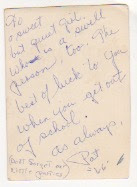 To
a sweet
but quiet girl.
Who is a swell
person, too. The
best of luck to you
when you get out
of school.
as always,
Pat
"46"
Don't forget our